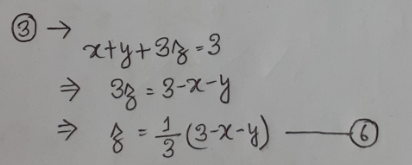 ③ →
x+y+3z=3
⇒ 3z = 3-x-y
⇒ z = 1/3 (3-x-y) —— ⑥